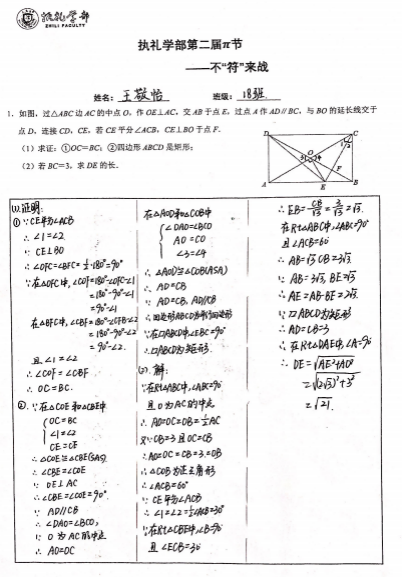 执礼学部
ZHILI FACULTY
执礼学部第二届π节
——不“符”来战
姓名：王敬怡 班级：18班.
1．如图，过△ABC边AC的中点O，作OE⊥AC，交AB于点E，过点A作AD∥BC，与BO的延长线交于
点D，连接CD，CE，若CE平分∠ACB，CE⊥BO于点F．
（1）求证：①OC=BC；②四边形ABCD是矩形；
（2）若BC=3，求DE的长．
D C
1 2
O
3 4
F
A E B
(1).证明：
① ∵CE平分∠ACB
∴∠1=∠2
∵CE⊥BO
∴∠OFC=∠BFC=½·180°=90°
∵在△OFC中，∠COF=180°-∠OFC-∠1
=180°-90°-∠1
=90°-∠1
在△BFC中，∠CBF=180°-∠CFB-∠2
=180°-90°-∠2
=90°-∠2.
且∠1=∠2
∴∠COF=∠CBF
∴OC=BC.
②. ∵在△COE和△CBE中
OC=BC
∠1=∠2
CE=CE
∴△COE≌△CBE(SAS)
∴∠CBE=∠COE
∵OE⊥AC
∴∠CBE=∠COE=90°.
∵AD//CB
∴∠DAO=∠BCO,
∵O为AC的中点
∴AO=OC
在△AOD和△COB中
∠DAO=∠BCO
AO=CO
∠3=∠4
∴△AOD≌△COB(ASA)
∴AD=CB
∵AD=CB, AD//CB
∴四边形ABCD为平行四边形
∵在□ABCD中∠EBC=90°
∴□ABCD为矩形.
(2). 解：
∵在Rt△ABC中,∠ABC=90°
且O为AC的中点
∴AO=OC=OB=½AC
又∵CB=3且OC=CB
∴AO=OC=CB=3=OB
∴△COB为正三角形
∴∠ACB=60°
∵CE平分∠ACB
∴∠1=∠2=½∠ACB=30°
∵在Rt△CBE中,∠B=90°
且∠ECB=30°
∴EB=CB/√3=3/√3=√3.
在Rt△ABC中,∠ABC=90°
且∠ACB=60°
∴AB=√3CB=3√3.
∵AB=3√3, BE=√3
∴AE=AB-BE=2√3.
∵□ABCD为矩形
∴AD=CB=3
∴在Rt△DAE中,∠A=90°
∴DE=√AE²+AD²
=√(2√3)²+3²
=√21.